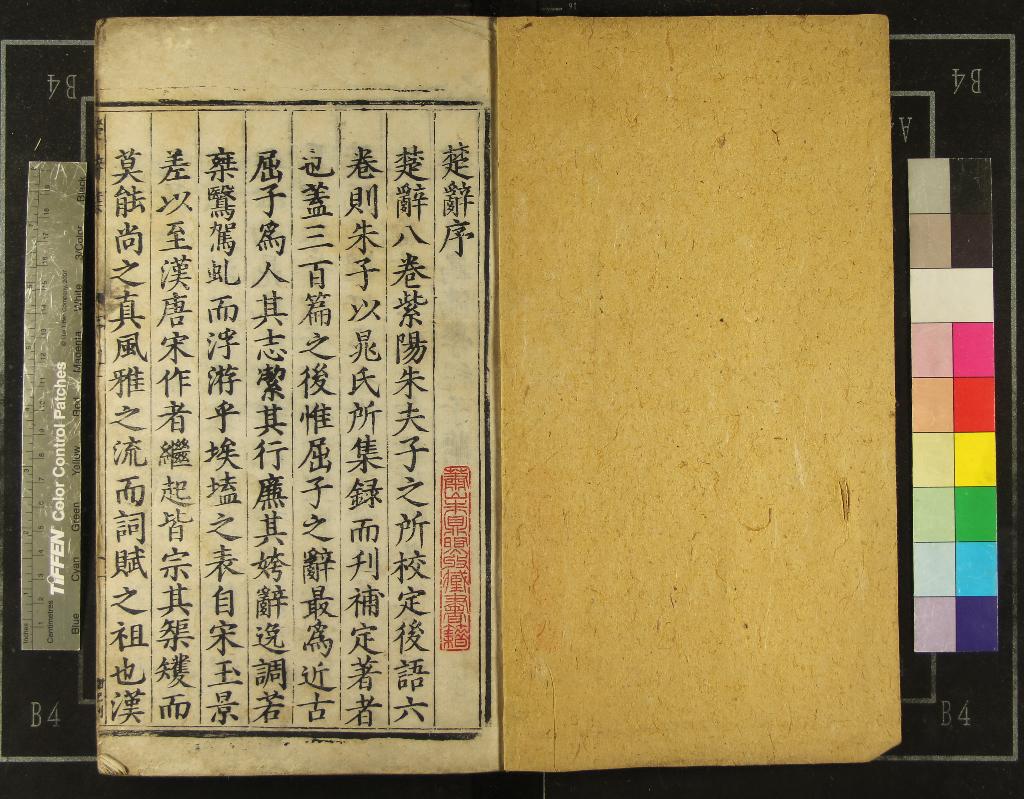 楚辭序
楚辭八卷紫陽朱夫子之所校定後語六
卷則朱子以晁氏所集録而刋補定著者
也蓋三百篇之後惟屈子之辭最為近古
屈子為人其志潔其行廉其姱辭逸調若
椉鷖駕虬而浮游乎埃壒之表自宋玉景
差以至漢唐宋作者繼起皆宗其榘矱而
莫能尚之真風雅之流而詞賦之祖也漢
B4
B4
B4
B4
A
TIFFEN Color Control Patches
© The Tiffen Company, 2007
Centimetres
Inches
Blue
Cyan
Green
Yellow
Red
Magenta
White
3/Color
Black